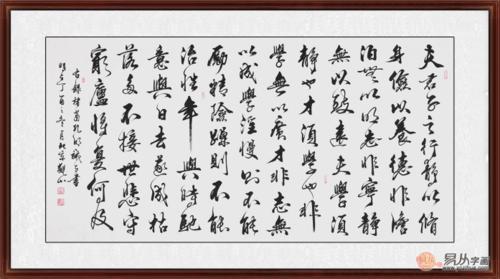 夫君子之行靜以修
身儉以養德非澹
泊無以明志非寧靜
無以致遠夫學須
靜也才須學也非
學無以廣才非志無
以成學淫慢則不能
勵精險躁則不能
治性年與時馳
意與日去遂成枯
落多不接世悲守
窮廬將復何及
諸葛孔明誡子書
丁酉之冬月北京
易从字画